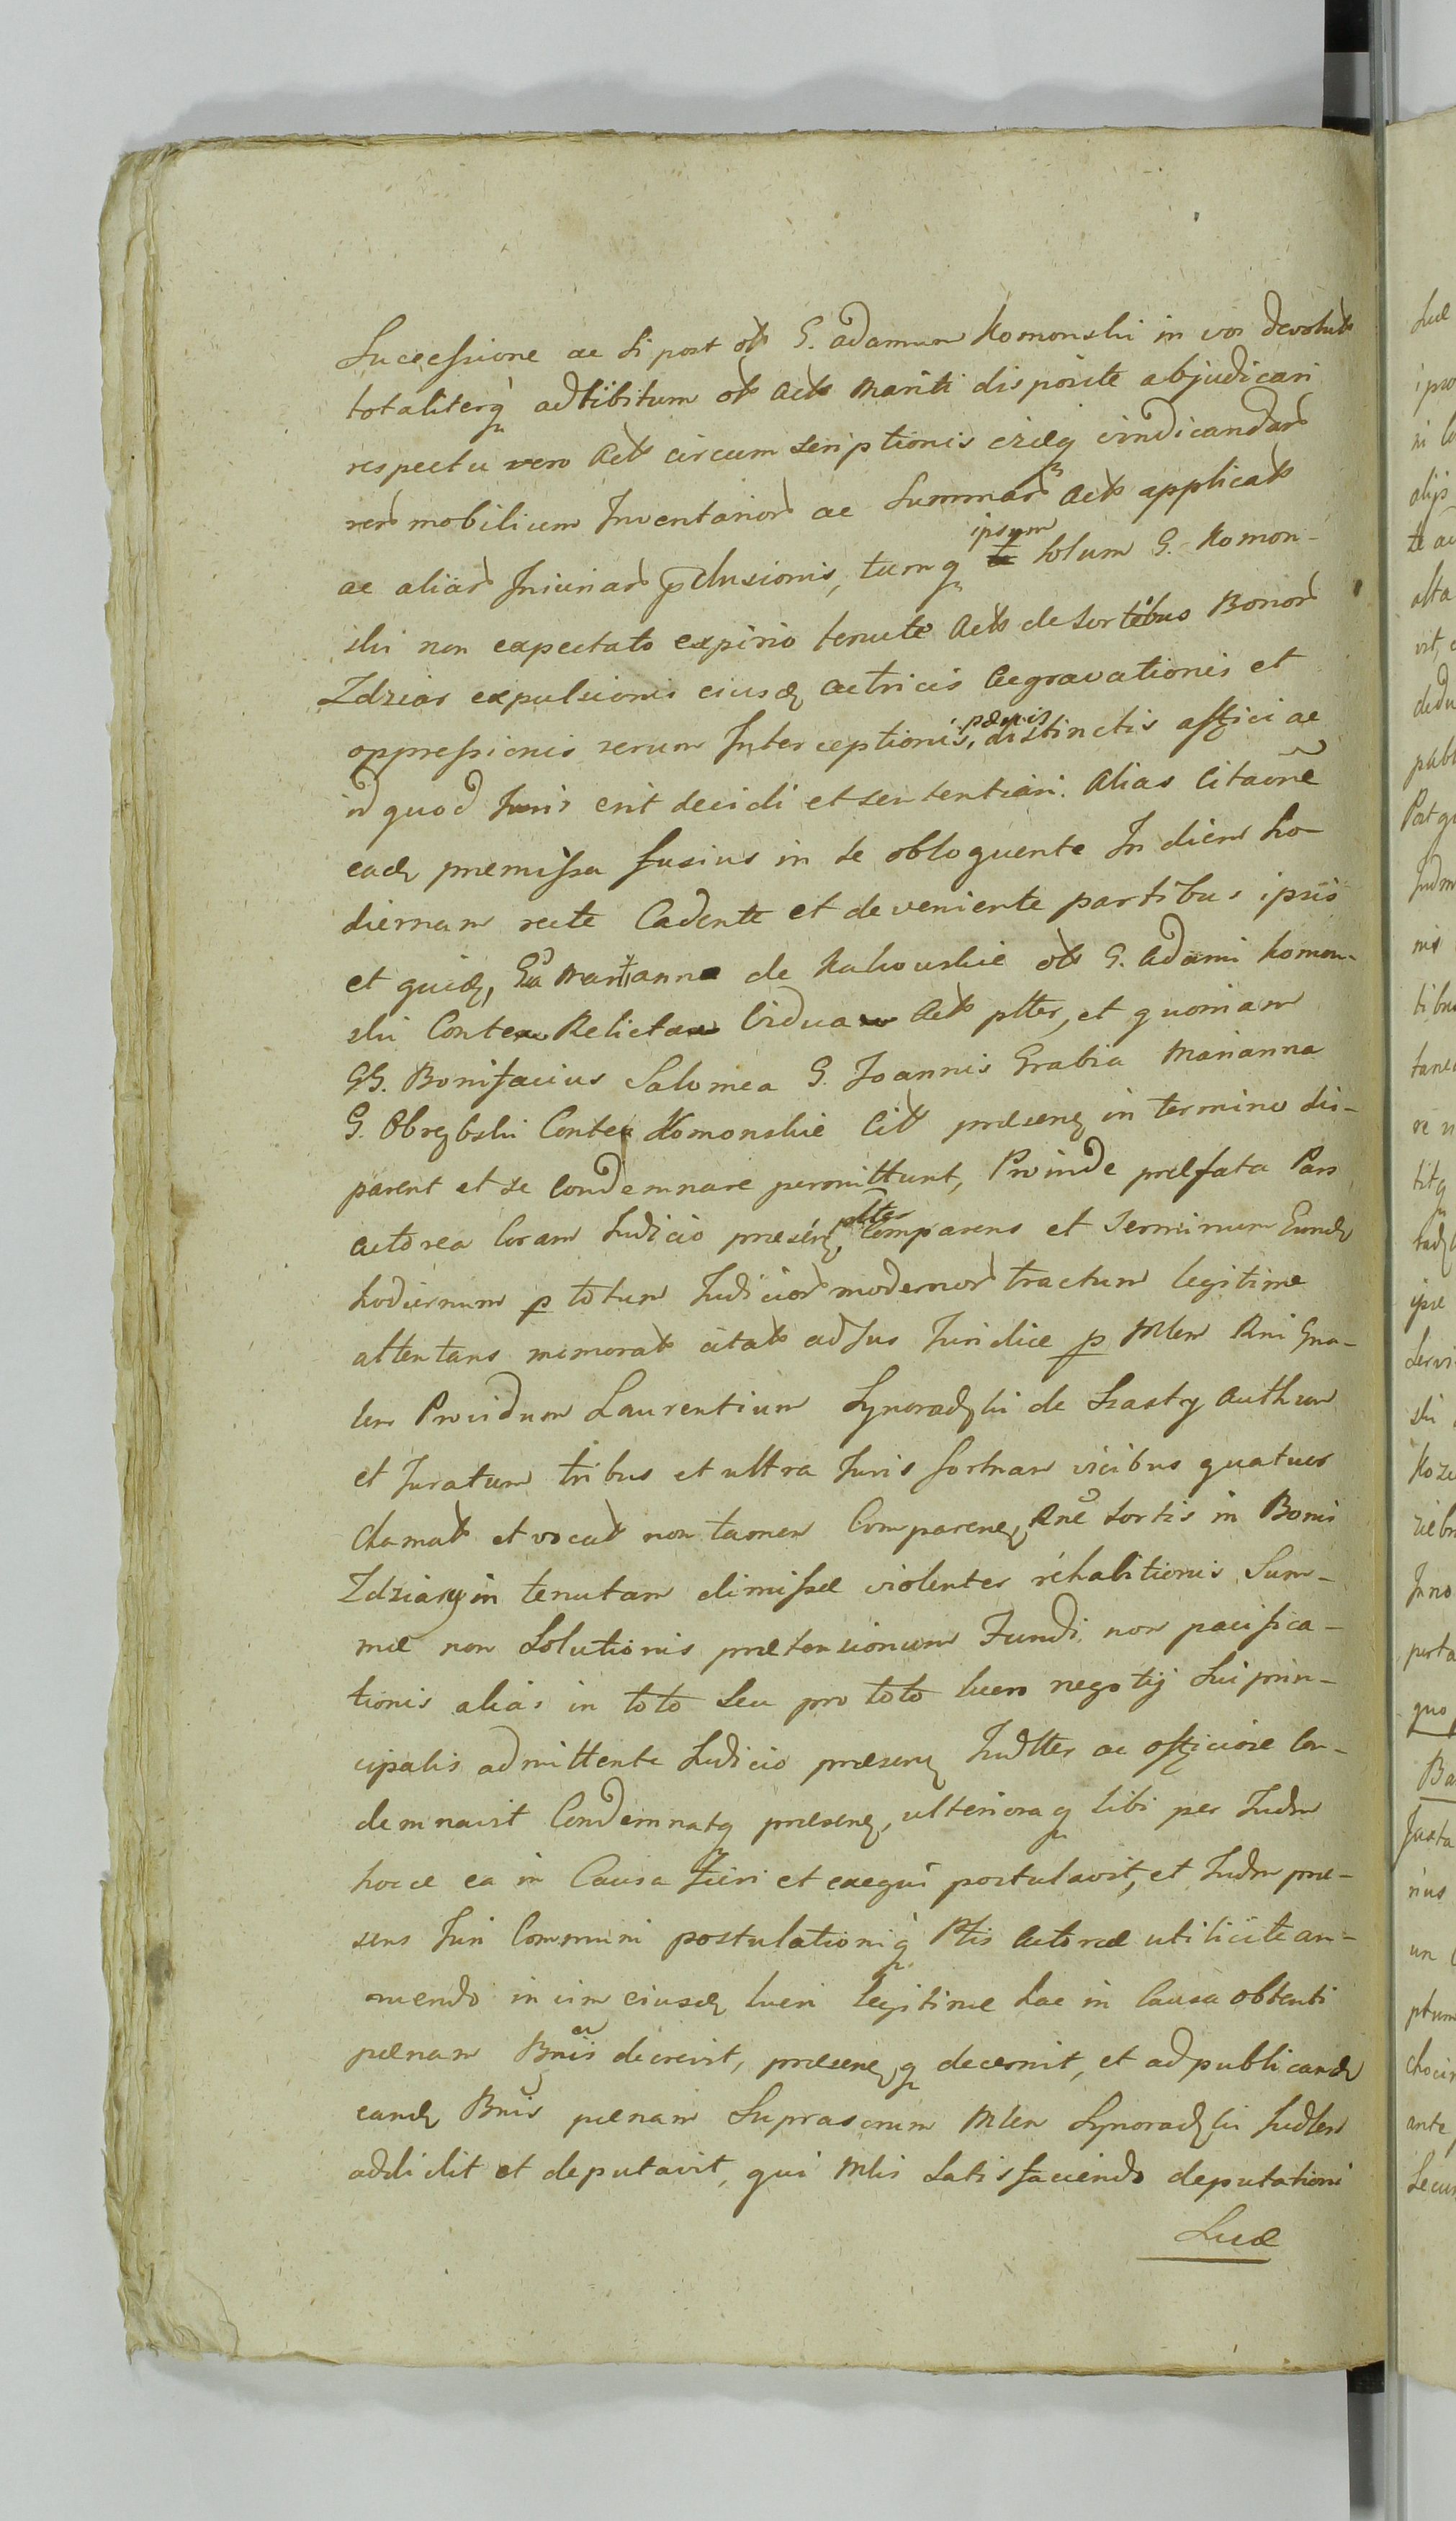 Successione ac si post ob G. Adamum Komonski in vos devolut
totaliterq adtibitum ob Act Mariti disposite abjudicari
respectu vero Act circumscriptionis erieq vindicandar
rer mobilium Inventarior ac Summar Act applicat
ac aliar Iniuriar pclusionis, tumq ipsum solum G. Komon-
ski non expectato expirio tenute Act de sortibus Bonor
Zdziar expulsionis eiusd Actricis Aegravationis et
oppressionis rerum Interceptionis, pænis distinctis affici ac
id quod Juris erit decidi et sententiari. Alias Citaone
ead premissa fusius in se obloquente In diem ho-
diernam recte Cadente et deveniente partibus ipsis
et quid, Ga Marianna de Rakowskie ob G. Adami Komon-
ski Conte Relicta Vidua Act plter, et quoniam
GG. Bonifacius Salomea G. Joannis Grabia Marianna
G. Obrębski Conte Komonskie Cit præsen in termino dis-
parent et se condemnare permittunt, Proinde præfata Pars
actorea Coram Judicio præsen, plter Comparens et Terminum Eund
hodiernum p totum Judicior modernor tractum legitime
attentans memorat citat ad Jus Juridice p Mlem Rni Gna-
lem Providum Laurentium Synoradzki de Szasty Authum
et Juratum tribus et ultra Juris formam vicibus quatuor
clamat et vocat non tamen Comparen, Rne sortis in Bonis
Zdziary in tenutam dimissæ violenter rehabitionis Sum-
mæ non Solutionis prætensionum Fundi non pacifica-
tionis alias in toto seu pro toto lucro negotij sui prin-
cipalis admittente Judicio præsen Judlter ac officiose Con-
demnavit Condemnatq præsen, ulterioraq sibi per Judm
hocce ea in Causa fieri et exequi postulavit, et Judm præ-
sens Juri Communi postulationiq Ptis Actoreæ utilicite an-
nuendo in vim eiusd lucri legitime hac in Causa obtenti
pænam Bnis decrevit, præsenq decernit, et ad publicand
eand Bnis pænam Suprascrim Mlem Synoradzki Judlem
addidit et deputavit, qui Mlis Satisfaciendo deputationi
Suæ